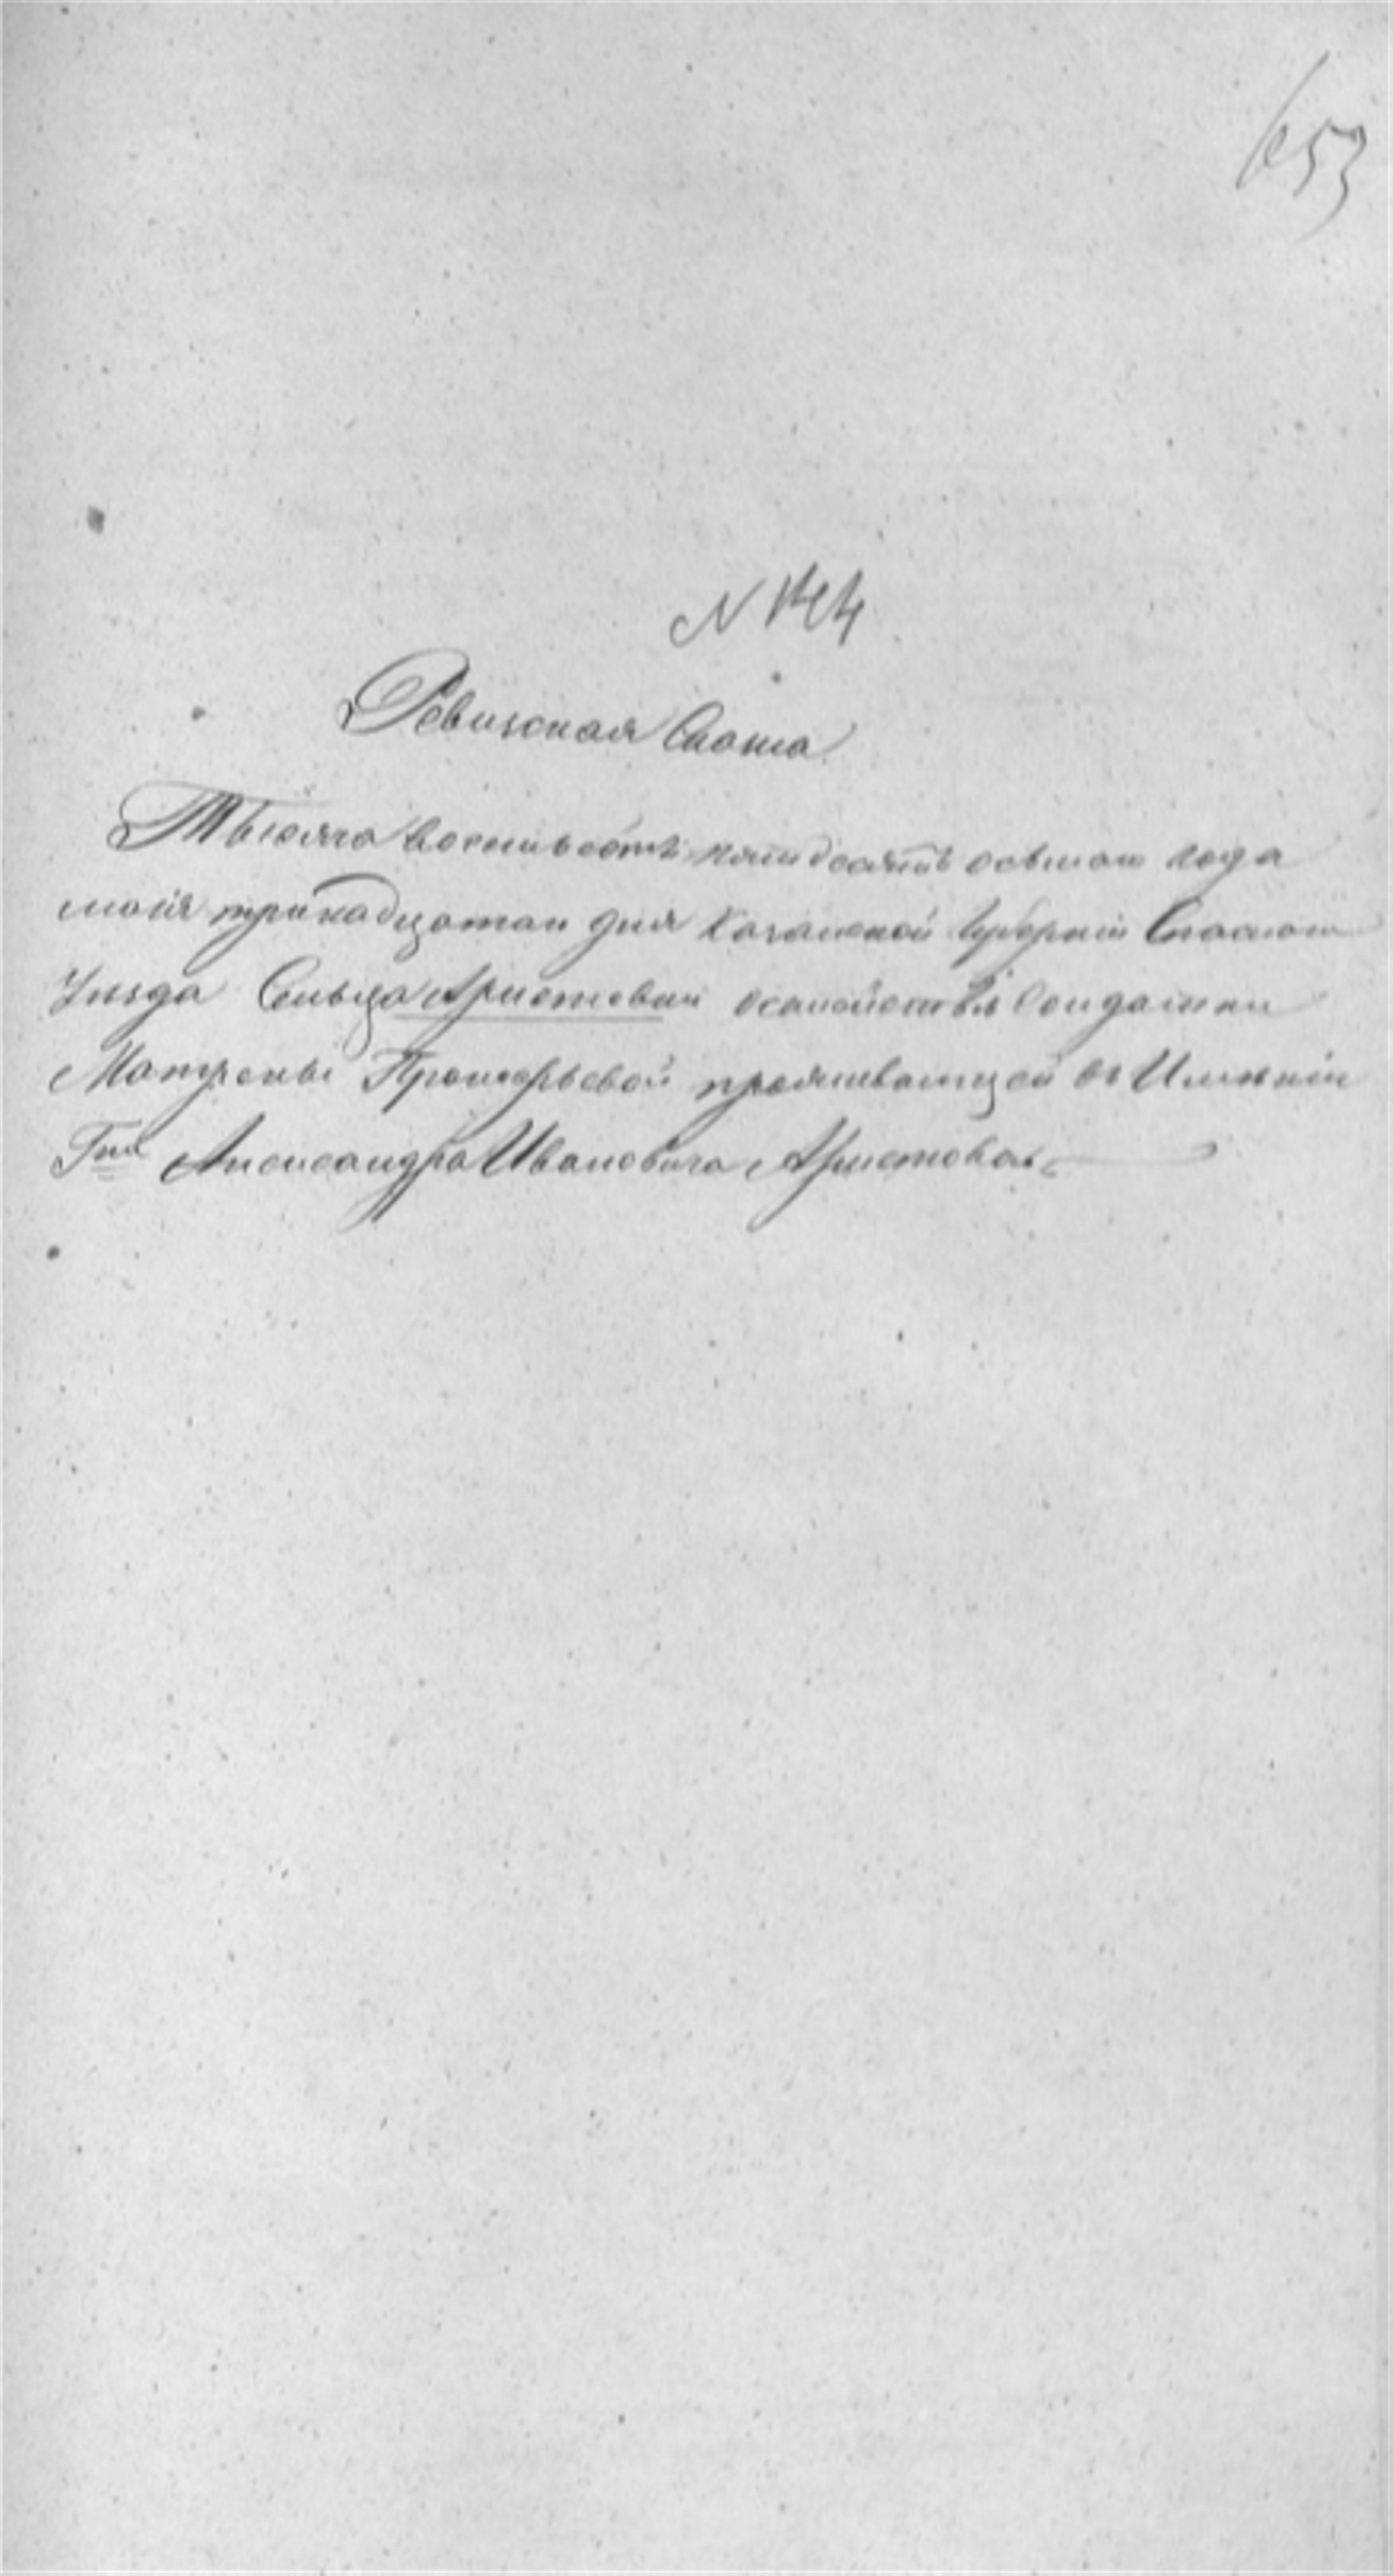 653
N 144
Ревизская Скаска
Тысяча восемьсотъ пятидесятъ осьмаго года
маія тринадцатаго дня Казанской Губерніи Спаскаго
Уѣзда Сельца Аристовки о семействѣ Солдатки
Матрены Прокофьевой проживающей въ Имѣніи
Гна Александра Ивановича Аристова